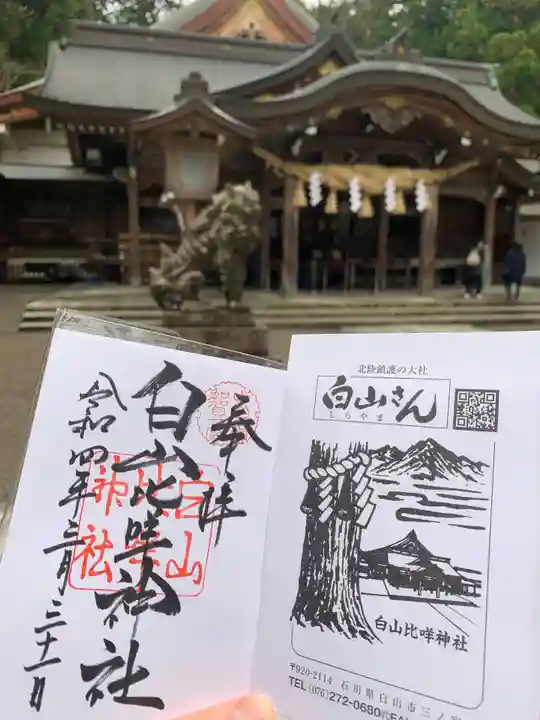 奉拝
白山比咩神社
令和四年三月三十一日
白山
比咩
神社
北陸鎮護の大社
白山さん
しらやま
白山比咩神社
〒920-2114 石川県白山市三ノ
TEL(076)272-0680